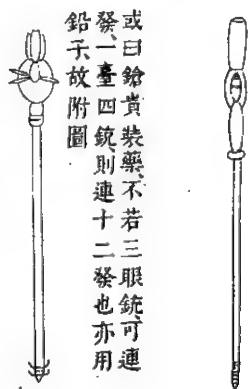 或曰鎗貴裝藥、不若三眼銃、可連
發、一臺四銃、則連十二發也、亦用
鉛子、故附圖